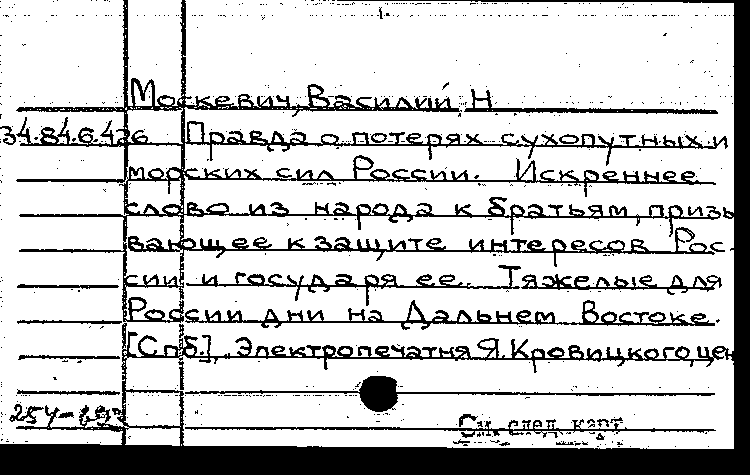 1.
Москевич, Василий Н
34.84.6.426 Правда о потерях сухопутных и
морских сил России. Искреннее
слово из народа к братьям, призы
вающее к защите интересов Рос-
сии и государя ее. Тяжелые для
России дни на Дальнем Востоке.
[Спб.], Электропечатня Я. Кровицкого, цен
См. след. карт.